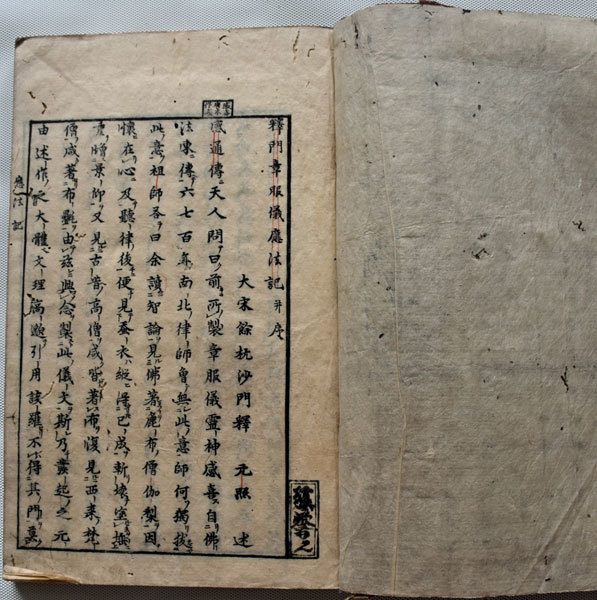 釋門章服儀應法記 并序
大宋餘杭沙門釋 元照 述
感通傳天人問曰前所製章服儀靈神感喜自佛
法東傳六七百年南北律師曾無此意師何獨拔
此意祖師答曰余讀智論見佛著麁布僧伽梨因
懷在心及聽律後便見蚕衣縱得已成斬壞塗埵
重增景仰又見古昔高僧咸皆著布復見西来梵
僧咸著布㲲由茲興念製此儀文斯乃發起之元
由述作之大體文理富逸引用該羅不得其門莫
應法記